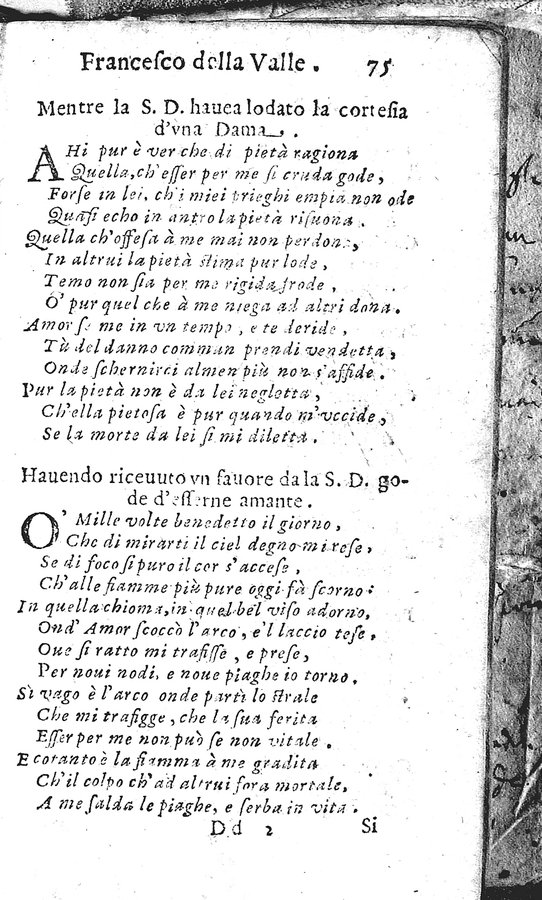 Franceſco della Valle. 75
Mentre la S. D. hauea lodato la corteſia
d'vna Dama.
AHi pur è ver che di pietà ragiona
Quella, ch'eſſer per me ſi cruda gode,
Forſe in lei, ch'i miei prieghi empia non ode
Quaſi echo in antro la pietà riſuona.
Quella ch'offeſa à me mai non perdona,
In altrui la pietà ſtima pur lode,
Temo non ſia per me rigida frode,
O' pur quel che à me niega ad altri dona.
Amor ſe me in vn tempo, e te deride,
Tù del danno commun prendi vendetta,
Onde ſchernirci almen più non s'affide.
Pur la pietà non è da lei negletta,
Ch'ella pietoſa è pur quando m'vccide,
Se la morte da lei ſi mi diletta.
Hauendo riceuuto vn fauore da la S. D. go-
de d'eſſerne amante.
O' Mille volte benedetto il giorno,
Che di mirarti il ciel degno mi reſe,
Se di foco ſi puro il cor s'acceſe,
Ch'alle fiamme più pure oggi fà ſcorno:
In quella chioma, in quel bel viſo adorno,
Ond' Amor ſcoccò l'arco, e'l laccio teſe,
Oue ſi ratto mi trafiſſe, e preſe,
Per noui nodi, e noue piaghe io torno.
Sì vago è l'arco onde partì lo ſtrale
Che mi trafigge, che la ſua ferita
Eſſer per me non può ſe non vitale.
E cotanto è la fiamma à me gradita
Ch'il colpo ch'ad altrui fora mortale,
A me ſalda le piaghe, e ſerba in vita.
D d 2 Si